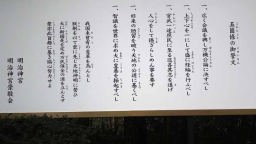 五箇條の御誓文
一、広く会議を興し万機公論に決すべし
一、上下心を一にして盛に経綸を行ふべし
一、官武一途庶民に至る迄各其志を遂げ
人心をして倦まざらしめん事を要す
一、旧来の陋習を破り天地の公道に基くべし
一、智識を世界に求め大に皇基を振起すべし
我国未曾有の変革を為んとし
朕躬を以て衆に先んじ天地神明に誓ひ
大に斯国是を定め万民保全の道を立んとす
衆亦此旨趣に基き協心努力せよ
明治神宮
明治神宮崇敬会